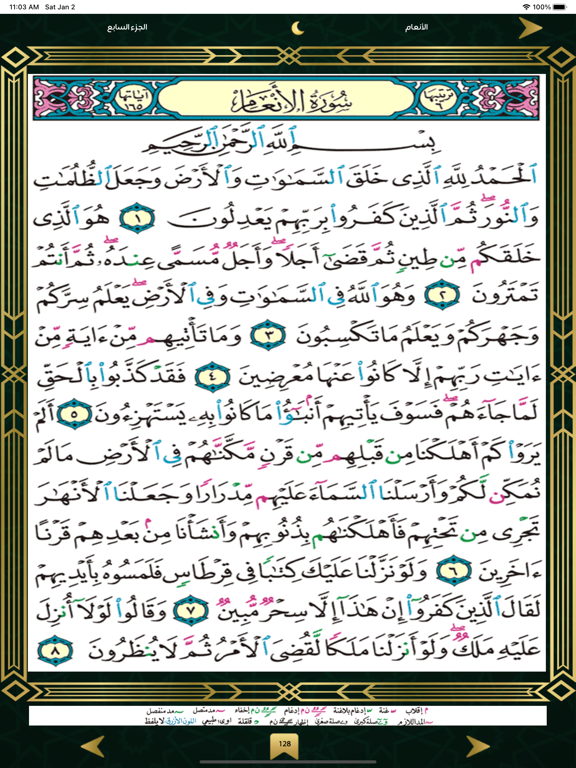 11:03 AM Sat Jan 2 100%
الجزء السابع الأنعام
ترتيبها ٦ سُورَةُ الأَنْعَامِ آياتها ١٦٥
بِسْمِ ٱللَّهِ ٱلرَّحْمَٰنِ ٱلرَّحِيمِ
ٱلْحَمْدُ لِلَّهِ ٱلَّذِى خَلَقَ ٱلسَّمَٰوَٰتِ وَٱلْأَرْضَ وَجَعَلَ ٱلظُّلُمَٰتِ
وَٱلنُّورَ ۖ ثُمَّ ٱلَّذِينَ كَفَرُوا۟ بِرَبِّهِمْ يَعْدِلُونَ ١ هُوَ ٱلَّذِى
خَلَقَكُم مِّن طِينٍ ثُمَّ قَضَىٰٓ أَجَلًا ۖ وَأَجَلٌ مُّسَمًّى عِندَهُۥ ۖ ثُمَّ أَنتُمْ
تَمْتَرُونَ ٢ وَهُوَ ٱللَّهُ فِى ٱلسَّمَٰوَٰتِ وَفِى ٱلْأَرْضِ ۖ يَعْلَمُ سِرَّكُمْ
وَجَهْرَكُمْ وَيَعْلَمُ مَا تَكْسِبُونَ ٣ وَمَا تَأْتِيهِم مِّنْ ءَايَةٍ مِّنْ
ءَايَٰتِ رَبِّهِمْ إِلَّا كَانُوا۟ عَنْهَا مُعْرِضِينَ ٤ فَقَدْ كَذَّبُوا۟ بِٱلْحَقِّ
لَمَّا جَآءَهُمْ ۖ فَسَوْفَ يَأْتِيهِمْ أَنۢبَٰٓؤُا۟ مَا كَانُوا۟ بِهِۦ يَسْتَهْزِءُونَ ٥ أَلَمْ
يَرَوْا۟ كَمْ أَهْلَكْنَا مِن قَبْلِهِم مِّن قَرْنٍ مَّكَّنَّٰهُمْ فِى ٱلْأَرْضِ مَا لَمْ
نُمَكِّن لَّكُمْ وَأَرْسَلْنَا ٱلسَّمَآءَ عَلَيْهِم مِّدْرَارًا وَجَعَلْنَا ٱلْأَنْهَٰرَ
تَجْرِى مِن تَحْتِهِمْ فَأَهْلَكْنَٰهُم بِذُنُوبِهِمْ وَأَنشَأْنَا مِنۢ بَعْدِهِمْ قَرْنًا
ءَاخَرِينَ ٦ وَلَوْ نَزَّلْنَا عَلَيْكَ كِتَٰبًا فِى قِرْطَاسٍ فَلَمَسُوهُ بِأَيْدِيهِمْ
لَقَالَ ٱلَّذِينَ كَفَرُوٓا۟ إِنْ هَٰذَآ إِلَّا سِحْرٌ مُّبِينٌ ٧ وَقَالُوا۟ لَوْلَآ أُنزِلَ
عَلَيْهِ مَلَكٌ ۖ وَلَوْ أَنزَلْنَا مَلَكًا لَّقُضِىَ ٱلْأَمْرُ ثُمَّ لَا يُنظَرُونَ ٨
م إقلاب غنة إدغام بلاغنة ن م إدغام ن م إخفاء مد متصل مد منفصل
المد اللازم صلة كبرى صلة صغرى إظهار قلقلة اوى: طبيعي اللون الأزرق لا يلفظ
128